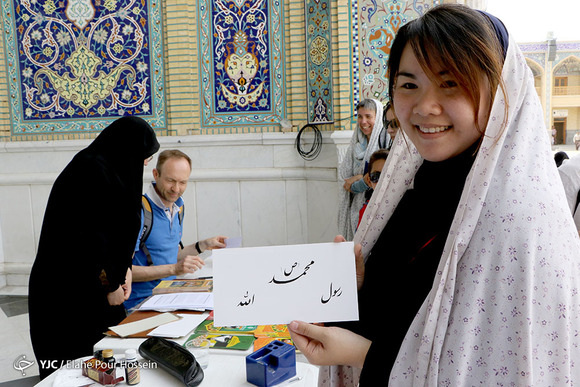 محمد ص
رسول الله
YJC / Elahe Pour Hossein